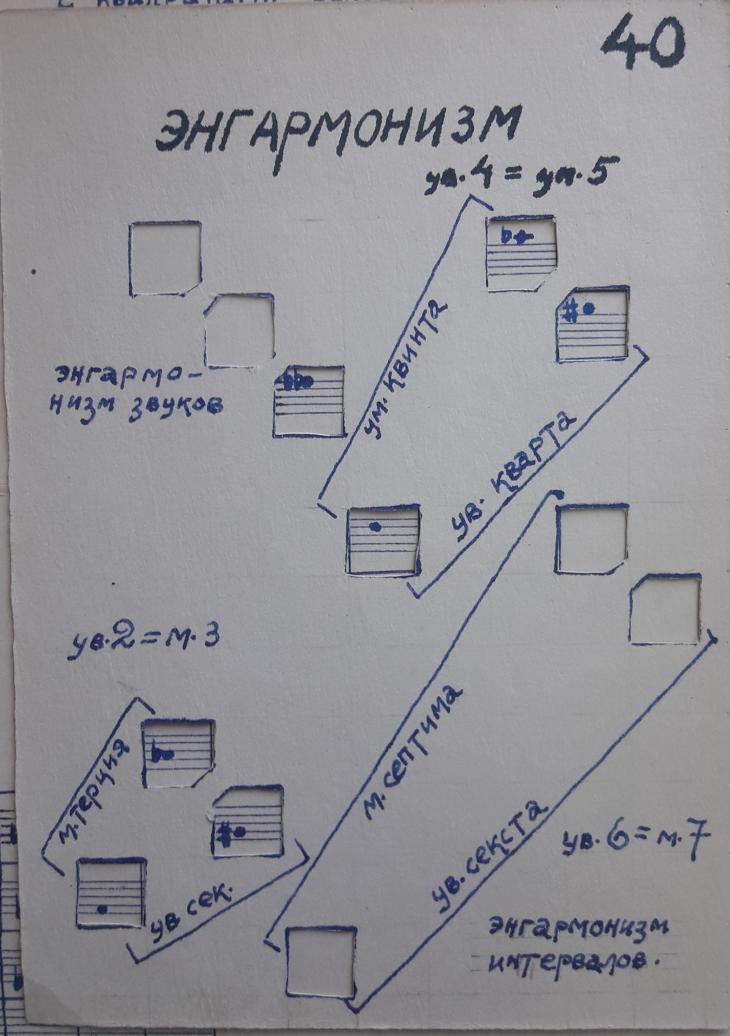 40
ЭНГАРМОНИЗМ
ув.4 = ум.5
ум. квинта
энгармо-
низм звуков
ув. кварта
ув.2=м.3
м.терция
ув.сек.
м.септима
ув.секста
ув.6=м.7
энгармонизм
интервалов.